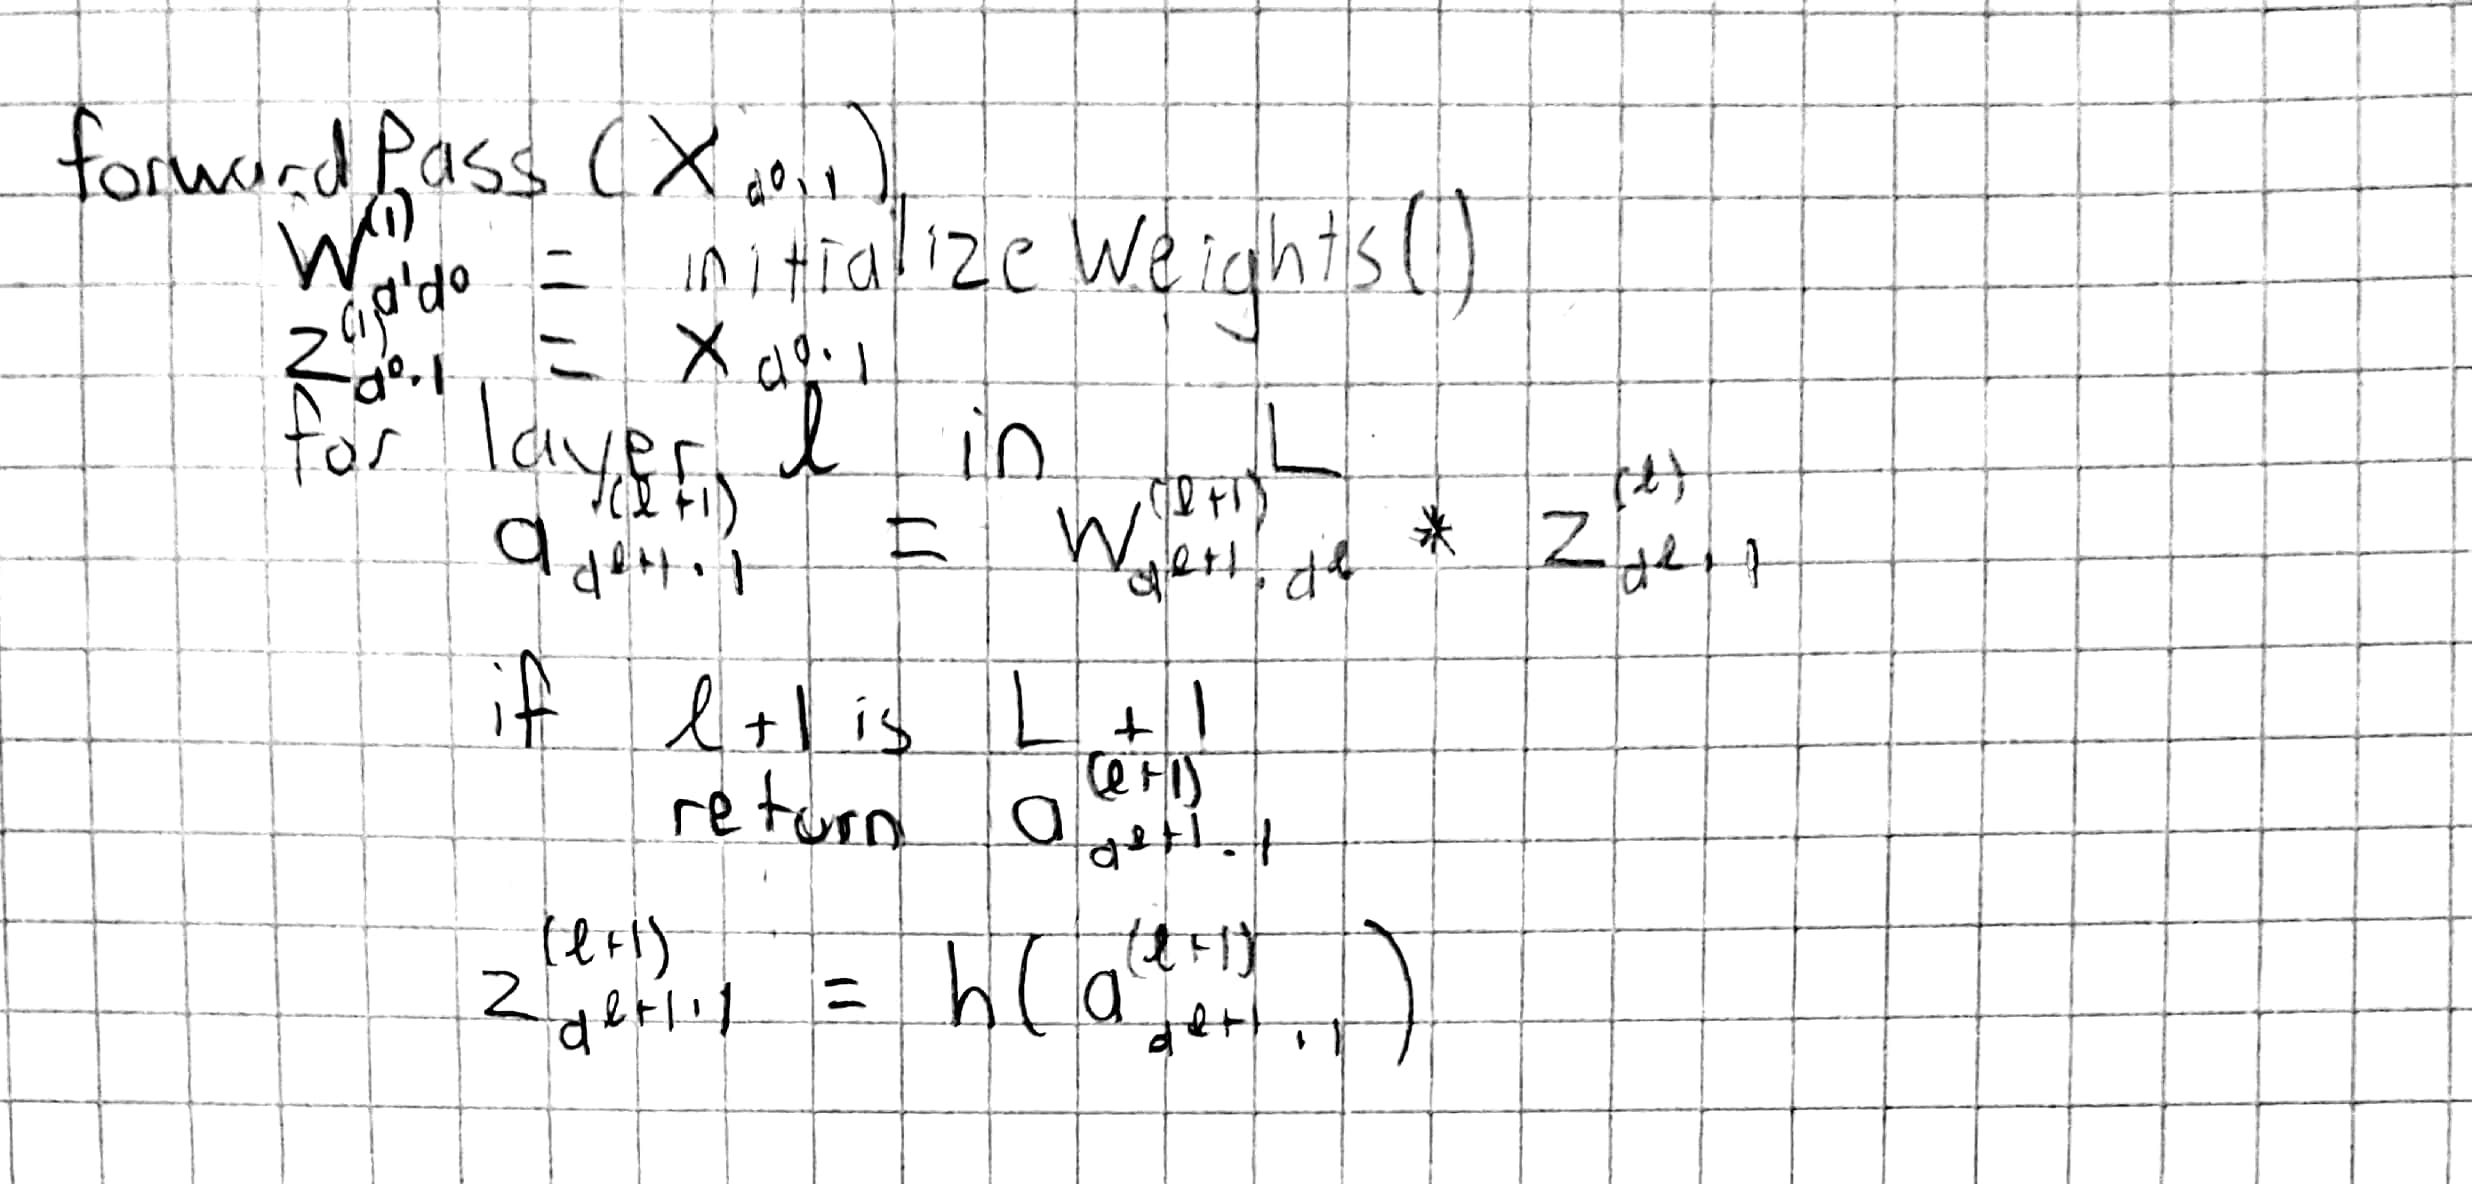 forwardPass (X_{d^0·1})
W^{(1)}_{d^1d^0} = initializeWeights()
z^{(1)}_{d^0·1} = x_{d^0·1}
for layer l in L
a^{(l+1)}_{d^{l+1}·1} = W^{(l+1)}_{d^{l+1}·d^l} * z^{(l)}_{d^l·1}
if l+1 is L+1
return a^{(l+1)}_{d^{l+1}·1}
z^{(l+1)}_{d^{l+1}·1} = h(a^{(l+1)}_{d^{l+1}·1})